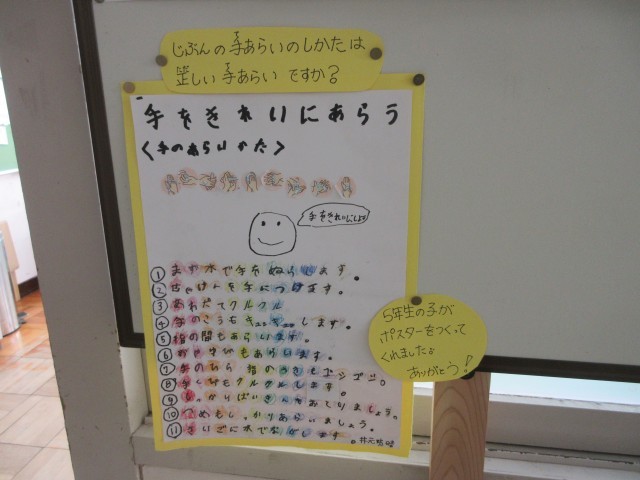 じぶんの手あらいのしかたは
正しい手あらいですか？
手をきれいにあらう
<手のあらいかた>
手をきれいにしよう
① まず水で手をぬらします。
② せっけんを手につけます。
③ あわたてクルクル
④ 手のこうもキュッキュッします。
⑤ 指の間もあらいます。
⑥ おやゆびもあらいます。
⑦ 手のひら 指のつめもゴシゴシ。
⑧ 手くびもクルクルします。
⑨ しっかりばいきんをおとしましょう。
⑩ つめもしっかりあらいましょう。
⑪ さいごに水でながします
5年生の子が
ポスターをつくって
くれました。
ありがとう！